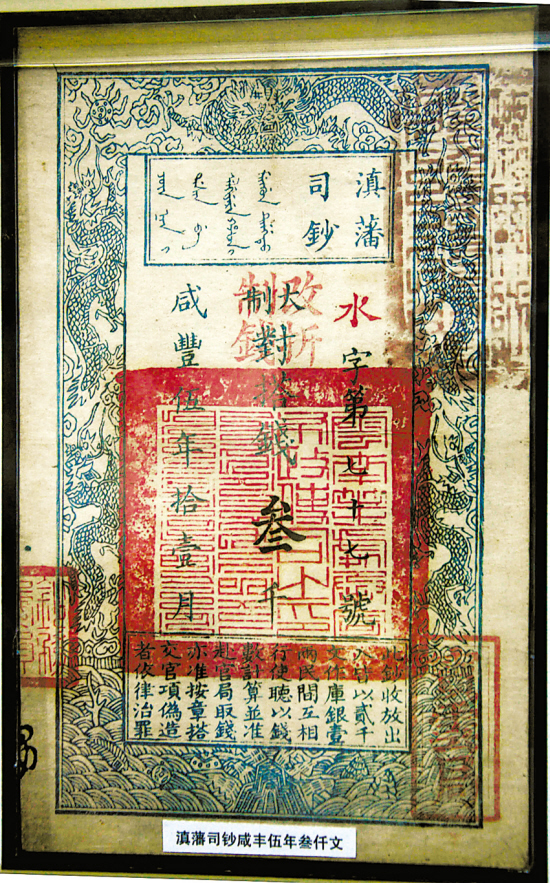 滇藩
司鈔
水字第七十七號
改折
制錢
大制對搭錢叁千
咸豐伍年拾壹月
此鈔收放出
入均以貳千
文作庫銀壹
兩民間互相
行使聽以錢
數計算並准
赴官局取錢
亦准按章搭
交官項偽造
者依律治罪
滇藩司钞咸丰伍年叁仟文